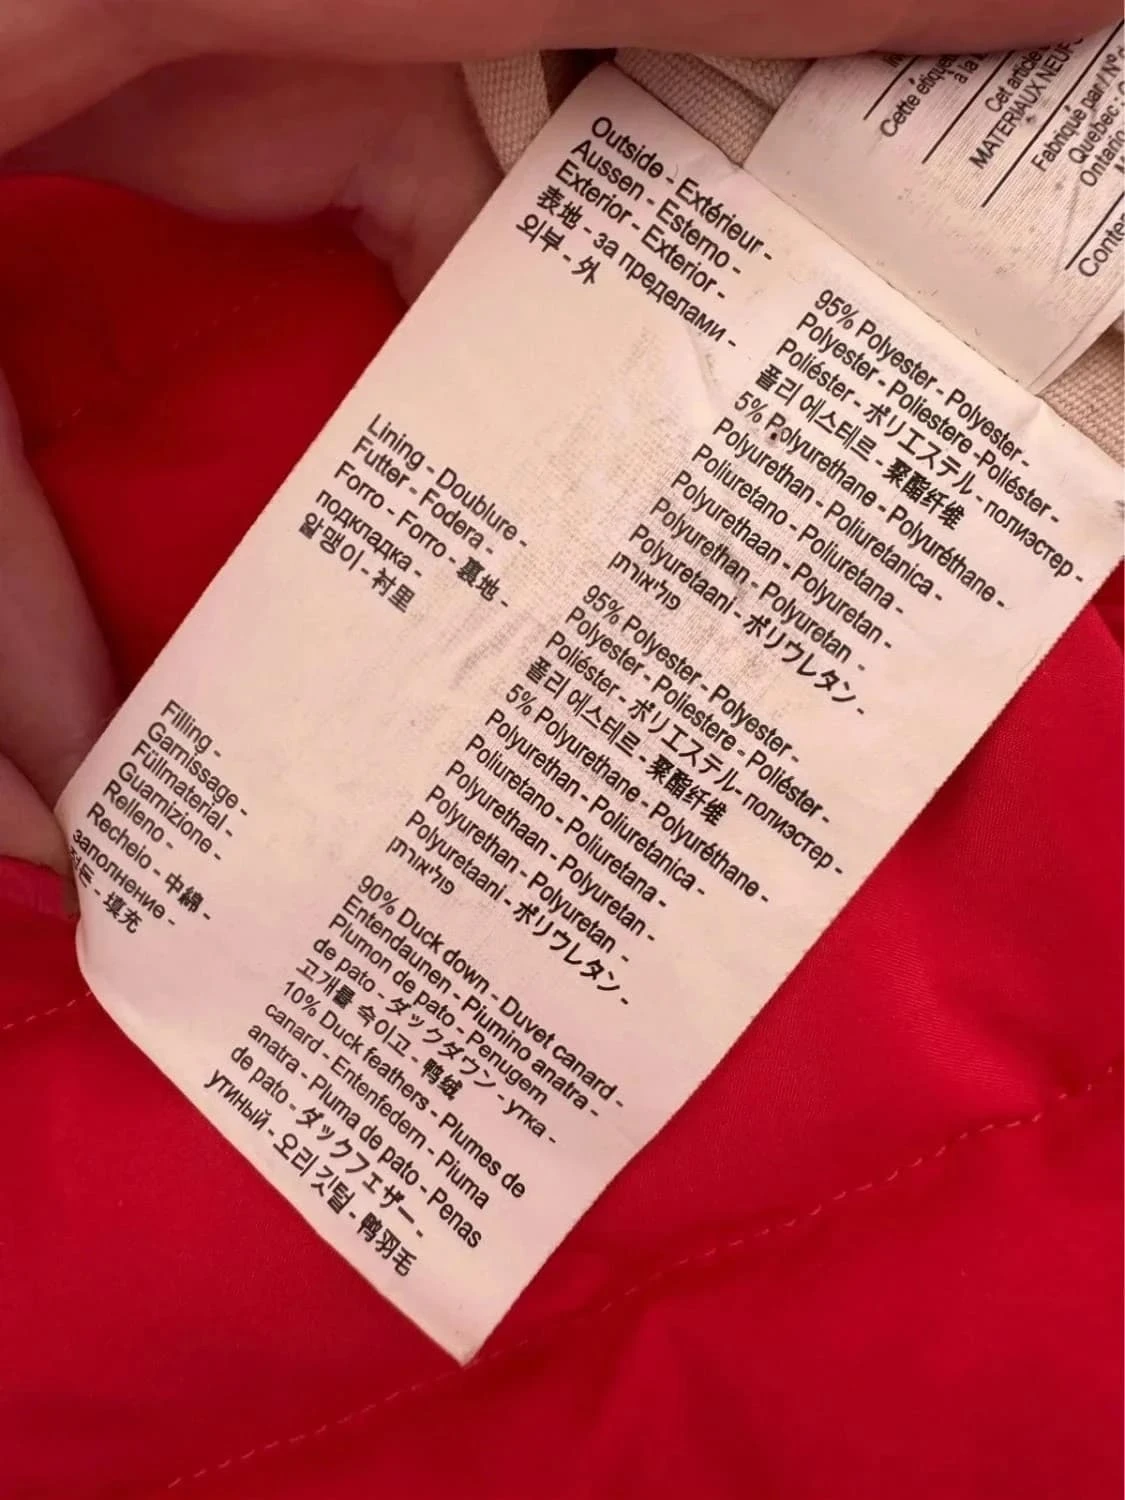 Outside - Extérieur -
Aussen - Esterno -
Exterior - Exterior -
表地 - за пределами -
외부 - 外
95% Polyester - Polyester -
Polyester - Poliestere -Poliéster -
Poliéster - ポリエステル - полиэстер -
폴리 에스테르 - 聚酯纤维
5% Polyurethane - Polyuréthane -
Polyurethan - Poliuretanica -
Poliuretano - Poliuretana -
Polyurethaan - Polyuretan -
Polyurethan - Polyuretan -
Polyuretaani - ポリウレタン -
פוליאורתן
Lining - Doublure -
Futter - Fodera -
Forro - Forro - 裏地 -
подкладка -
알맹이 - 衬里
95% Polyester - Polyester -
Polyester - Poliestere - Poliéster -
Poliéster - ポリエステル- полиэстер -
폴리 에스테르 - 聚酯纤维
5% Polyurethane - Polyuréthane -
Polyurethan - Poliuretanica -
Poliuretano - Poliuretana -
Polyurethaan - Polyuretan -
Polyurethan - Polyuretan -
Polyuretaani - ポリウレタン -
פוליאורתן
Filling -
Garnissage -
Füllmaterial -
Guarnizione -
Relleno -
Recheio - 中綿 -
заполнение -
- 填充
90% Duck down - Duvet canard -
Entendaunen - Piumino anatra -
Plumon de pato - Penugem
de pato - ダックダウン - утка -
고개를 숙이고 - 鸭绒
10% Duck feathers - Plumes de
canard - Entenfedern - Piuma
anatra - Pluma de pato - Penas
de pato - ダックフェザー -
утиный - 오리 깃털 - 鸭羽毛
Cette
à la
Cet article
MATERIAUX NEUFS
Fabriqué par / N° d
Quebec :
Ontario